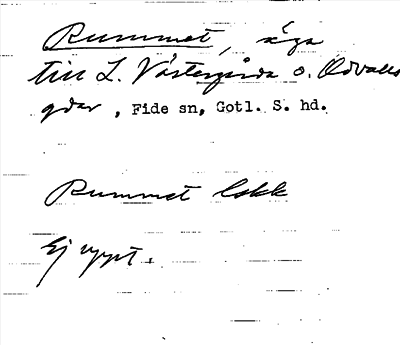 Rummet, äga
till L. Västergårda o. Ödvalls
gdar, Fide sn, Gotl. S. hd.
Rummet lokk
Ej uppt.